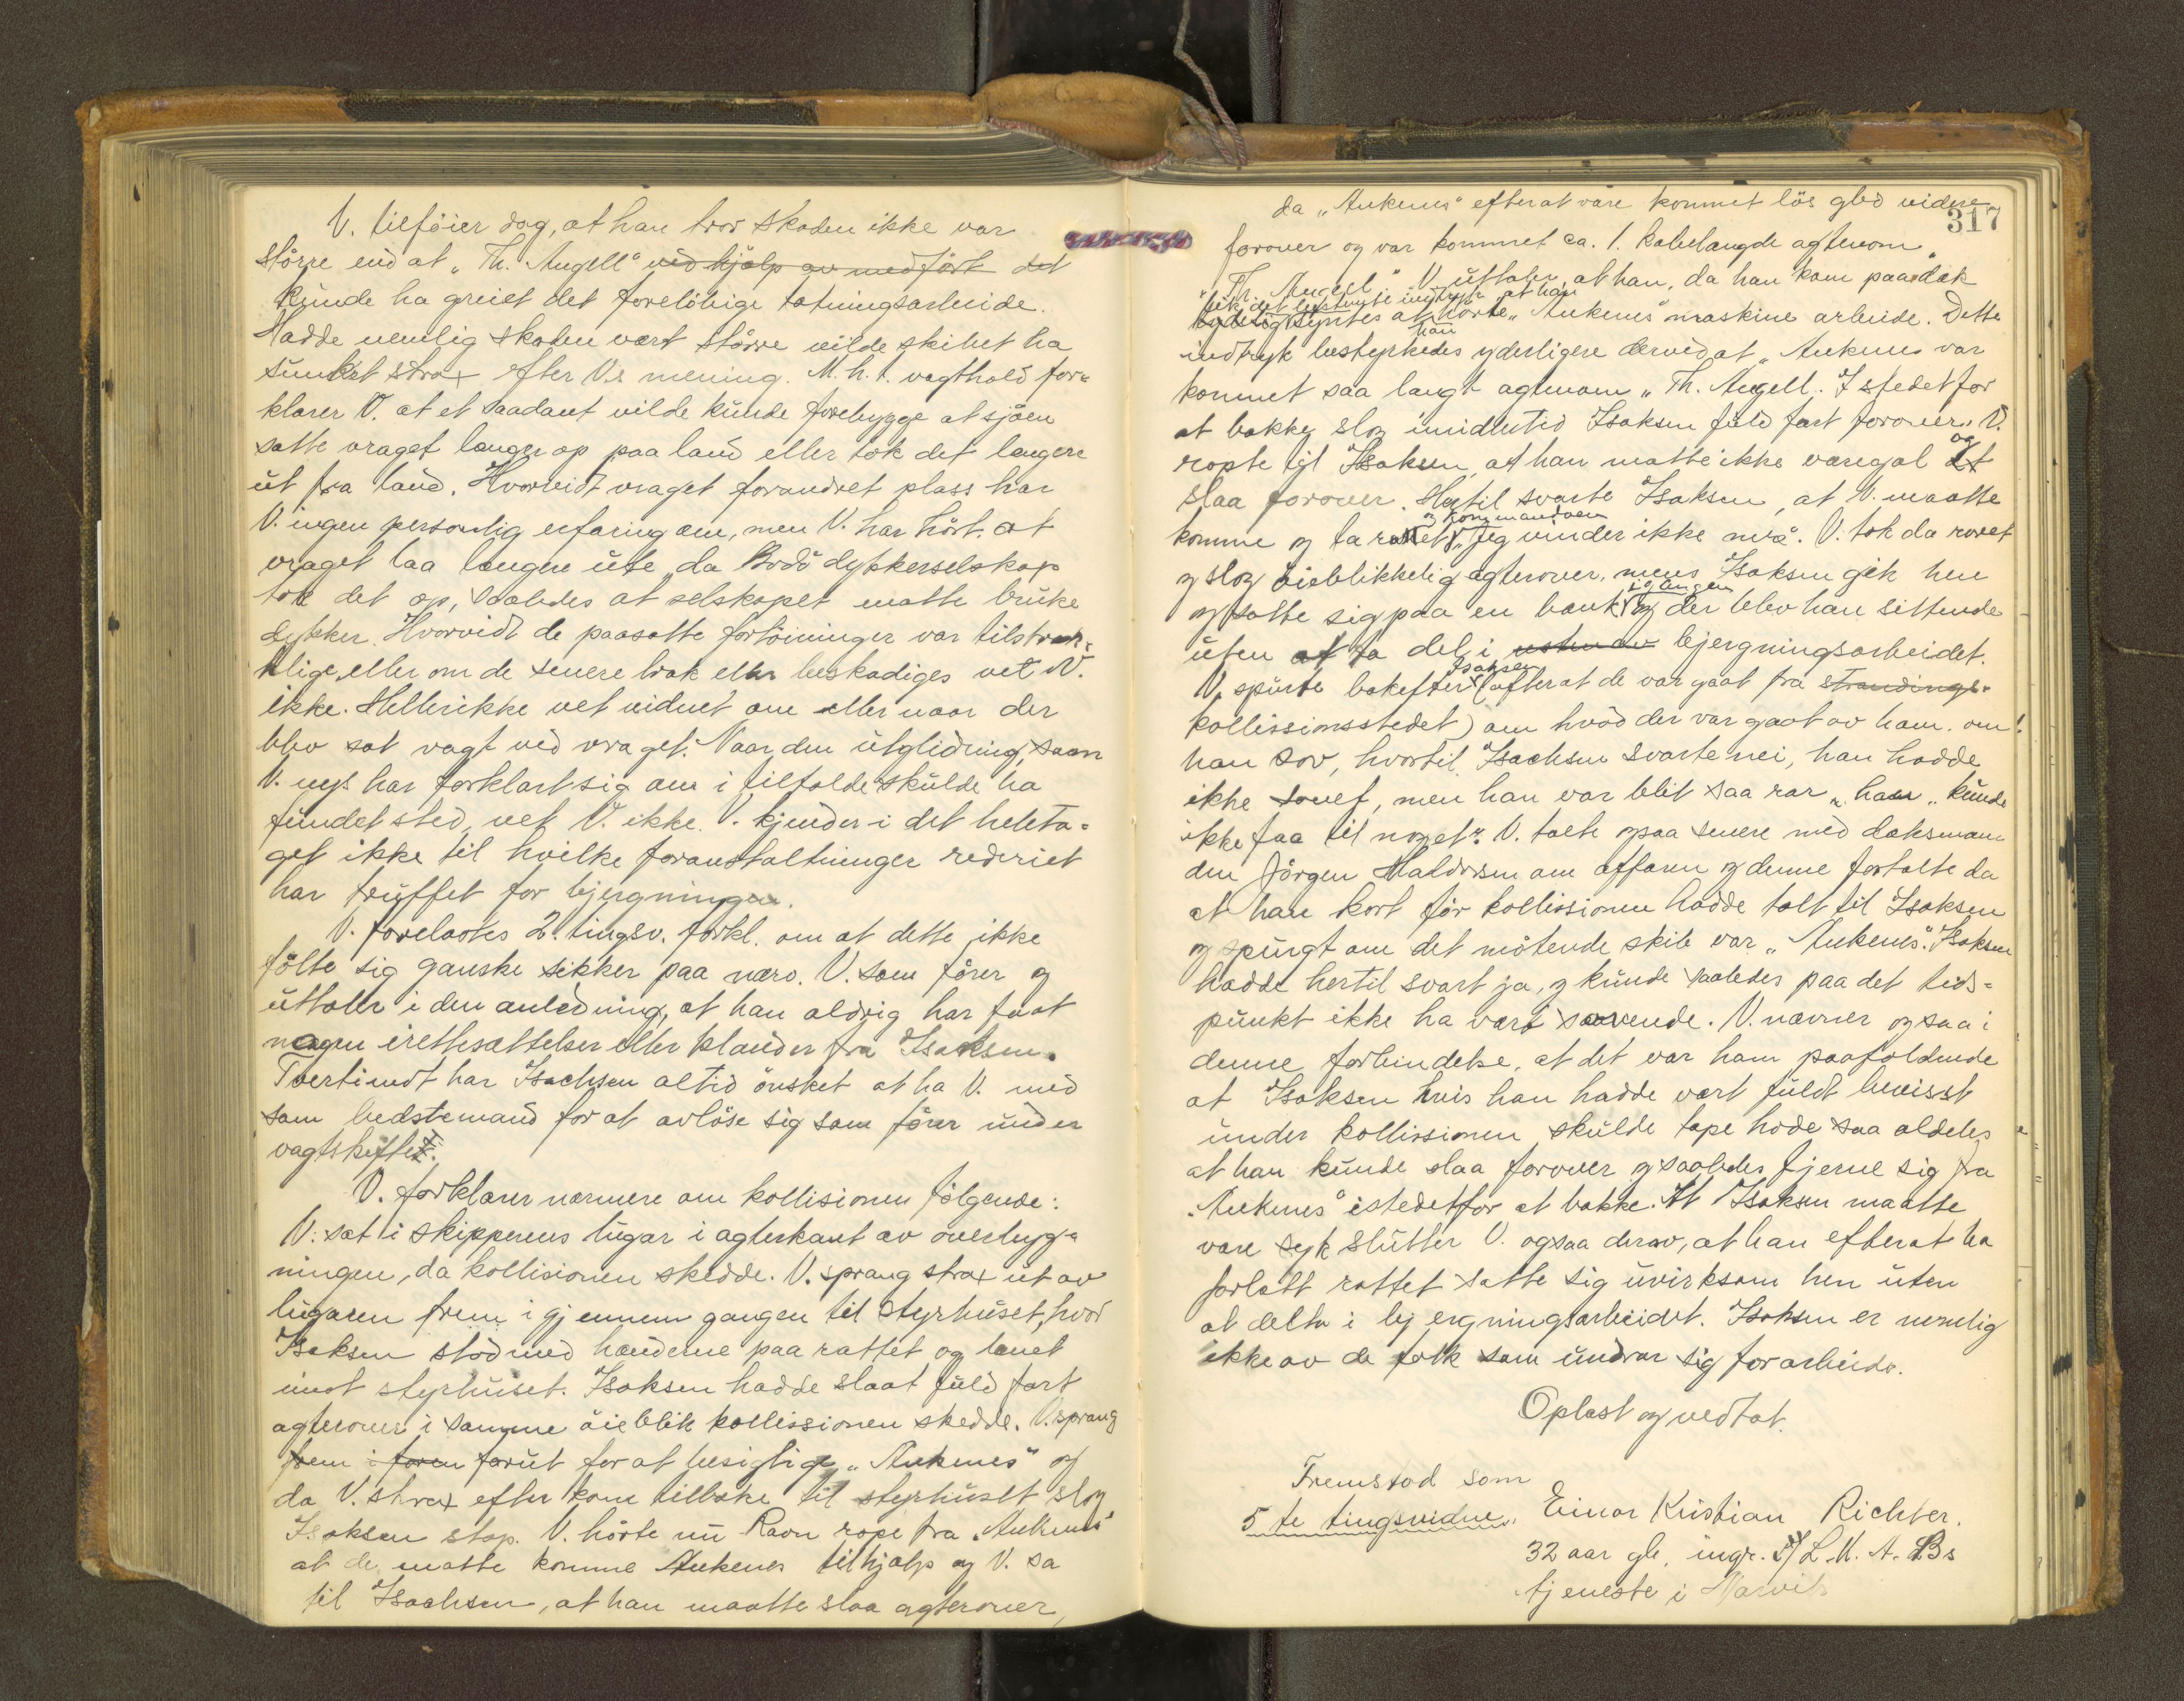 V. tilföier dog, at han tror skaden ikke var
större end at „Th. Angell" ved hjælp av medfört det
kunde ha greiet det forelöbige tætningsarbeide.
Hadde nemlig skaden vært större vilde skibet ha
sunket strax efter V.s mening. M.h.t. vagthold for-
klarer V. at et saadant vilde kunde forebygge at sjöen
satte vraget længer op paa land eller tok det længere
ut fra land. Hvorvidt vraget forandret plass har
V. ingen personlig erfaring om, men V. har hört at
vraget laa længere ute da Bodö dykkerselskap
tok det op, saaledes at selskapet matte bruke
dykker. Hvorvidt de paasatte fortöininger var tilstræk-
kelige, eller om de senere brak eller beskadiges vet V.
ikke. Heller ikke vet vidnet om eller naar der
blev sat vagt ved vraget. Naar den utglidning, saam
V. nys har forklart sig om i tilfælde skulde ha
fundet sted, vet V. ikke. V. kjender i det heleta-
get ikke til hvilke foranstaltninger rederiet
har truffet for bjergningen.
V. forelæstes 2. tingsv. forkl. om at dette ikke
fölte sig ganske sikker paa nærv. V. som förer og
uttaler i den anledning, at han aldrig har faat
nogen irettesættelser eller klander fra Isaksen.
Tvertimot har Isachsen altid önsket at ha V. med
som bedstemand for at avlöse sig som förer under
vagtskiftet.
V. forklarer nærmere om kollisionen fölgende:
V. sat i skipperens lugar i agterkant av overbyg-
ningen, da kollisionen skedde. V. sprang strax ut av
lugaren frem i gjennem gangen til styrhuset, hvor
Isaksen stod med hænderne paa rattet og lænet
imot styrhuset. Isaksen hadde slaat fuld fart
agterover i samme öieblik kollissionen skedde. V. sprang
frem i foren forut for at besigtige „Ankenes" og
da V. strax efter kom tilbake til styrhuset slog
Isaksen stop. V. hörte nu Ravn rope fra „Ankenes"
at de matte komme Ankenes tilhjælp og V. sa
til Isachsen, at han maatte slaa agterover,
317
da „Ankenes" efterat være kommet lös gled videre
forover og var kommet ca. 1. kabelængde agtenom
„Th. Angell" V. uttaler, at han, da han kom paa dæk
fik det bestemte indtryk at han
tydelig syntes at hörte „Ankenes" maskine arbeide. Dette
han
indtryk bestyrkedes yderligere derved at „Ankenes var
kommet saa langt agtenom „Th. Angell. I stedet for
at bakke slog imidlertid Isaksen fuld fart forover. V.
ropte til Isaksen, at han matte ikke være gal og
slaa forover. Hertil svarte Isaksen, at V. maatte
og kommandoen
komme og ta rattet „Jeg vinder ikke mer". V. tok da roret
og slog öieblikkelig agterover, mens Isaksen gik hen
og satte sig paa en bænk i gangen og der blev han sittende
uten at ta del i bjergningsarbeidet.
Isaksen
V. spurte bakefter (efterat de var gaat fra strandings-
kollissionsstedet) om hvad der var gaat av ham, om
han sov, hvortil Isachsen svarte nei, han hadde
ikke sovet, men han var blit saa rar „han „kunde
ikke faa til noget". V. talte ogsaa senere med dæksman-
den Jörgen Haldorsen om affæren og denne fortalte da
at han kort för kollissionen hadde talt til Isaksen
og spurgt om det mötende skib var „Ankenes". Isaksen
hadde hertil svart ja, og kunde saaledes paa det tids-
punkt ikke ha vært sovende. V. nævner ogsaa i
denne forbindelse, at det var ham paafaldende
at Isaksen hvis han hadde vært fuldt bevisst
under kollissionen skulde tape hode saa aldeles
at han kunde slaa forover og saaledes fjerne sig fra
„Ankenes" istedetfor at bakke. At Isaksen maatte
være syk slutter V. ogsaa derav, at han efterat ha
forlatt rattet satte sig uvirksom hen uten
at delta i bjergningsarbeidet. Isaksen er nemlig
ikke av de folk som undrar sig for arbeide.
Oplæst og vedtat.
Fremstod som
5te tingsvidne, Einar Kristian Richter.
32 aar gl, ingr. i L.K.A.Bs
tjeneste i Narvik